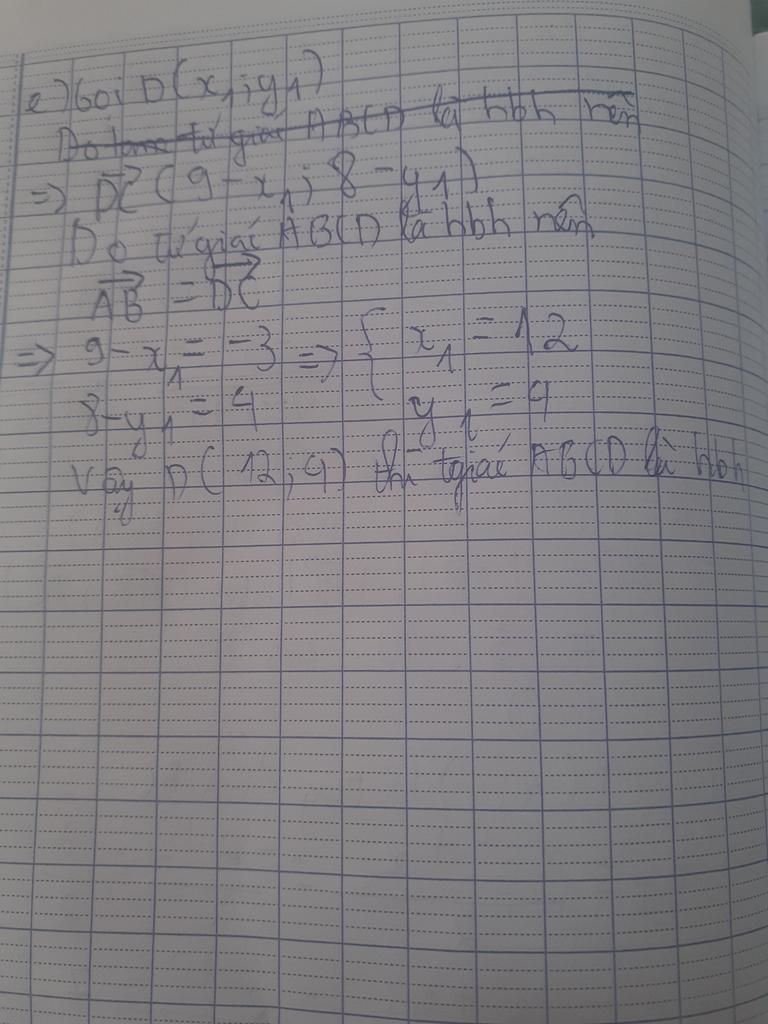 e) Gọi D(x₁; y₁)
Do tứ giác ABCD là hbh nên
=> DC (9 - x₁; 8 - y₁)
Do tứ giác ABCD là hbh nên
AB = DC
=> 9 - x₁ = -3 => { x₁ = 12
8 - y₁ = 4 y₁ = 4
Vậy D(12; 4) thì tgiác ABCD là hbh